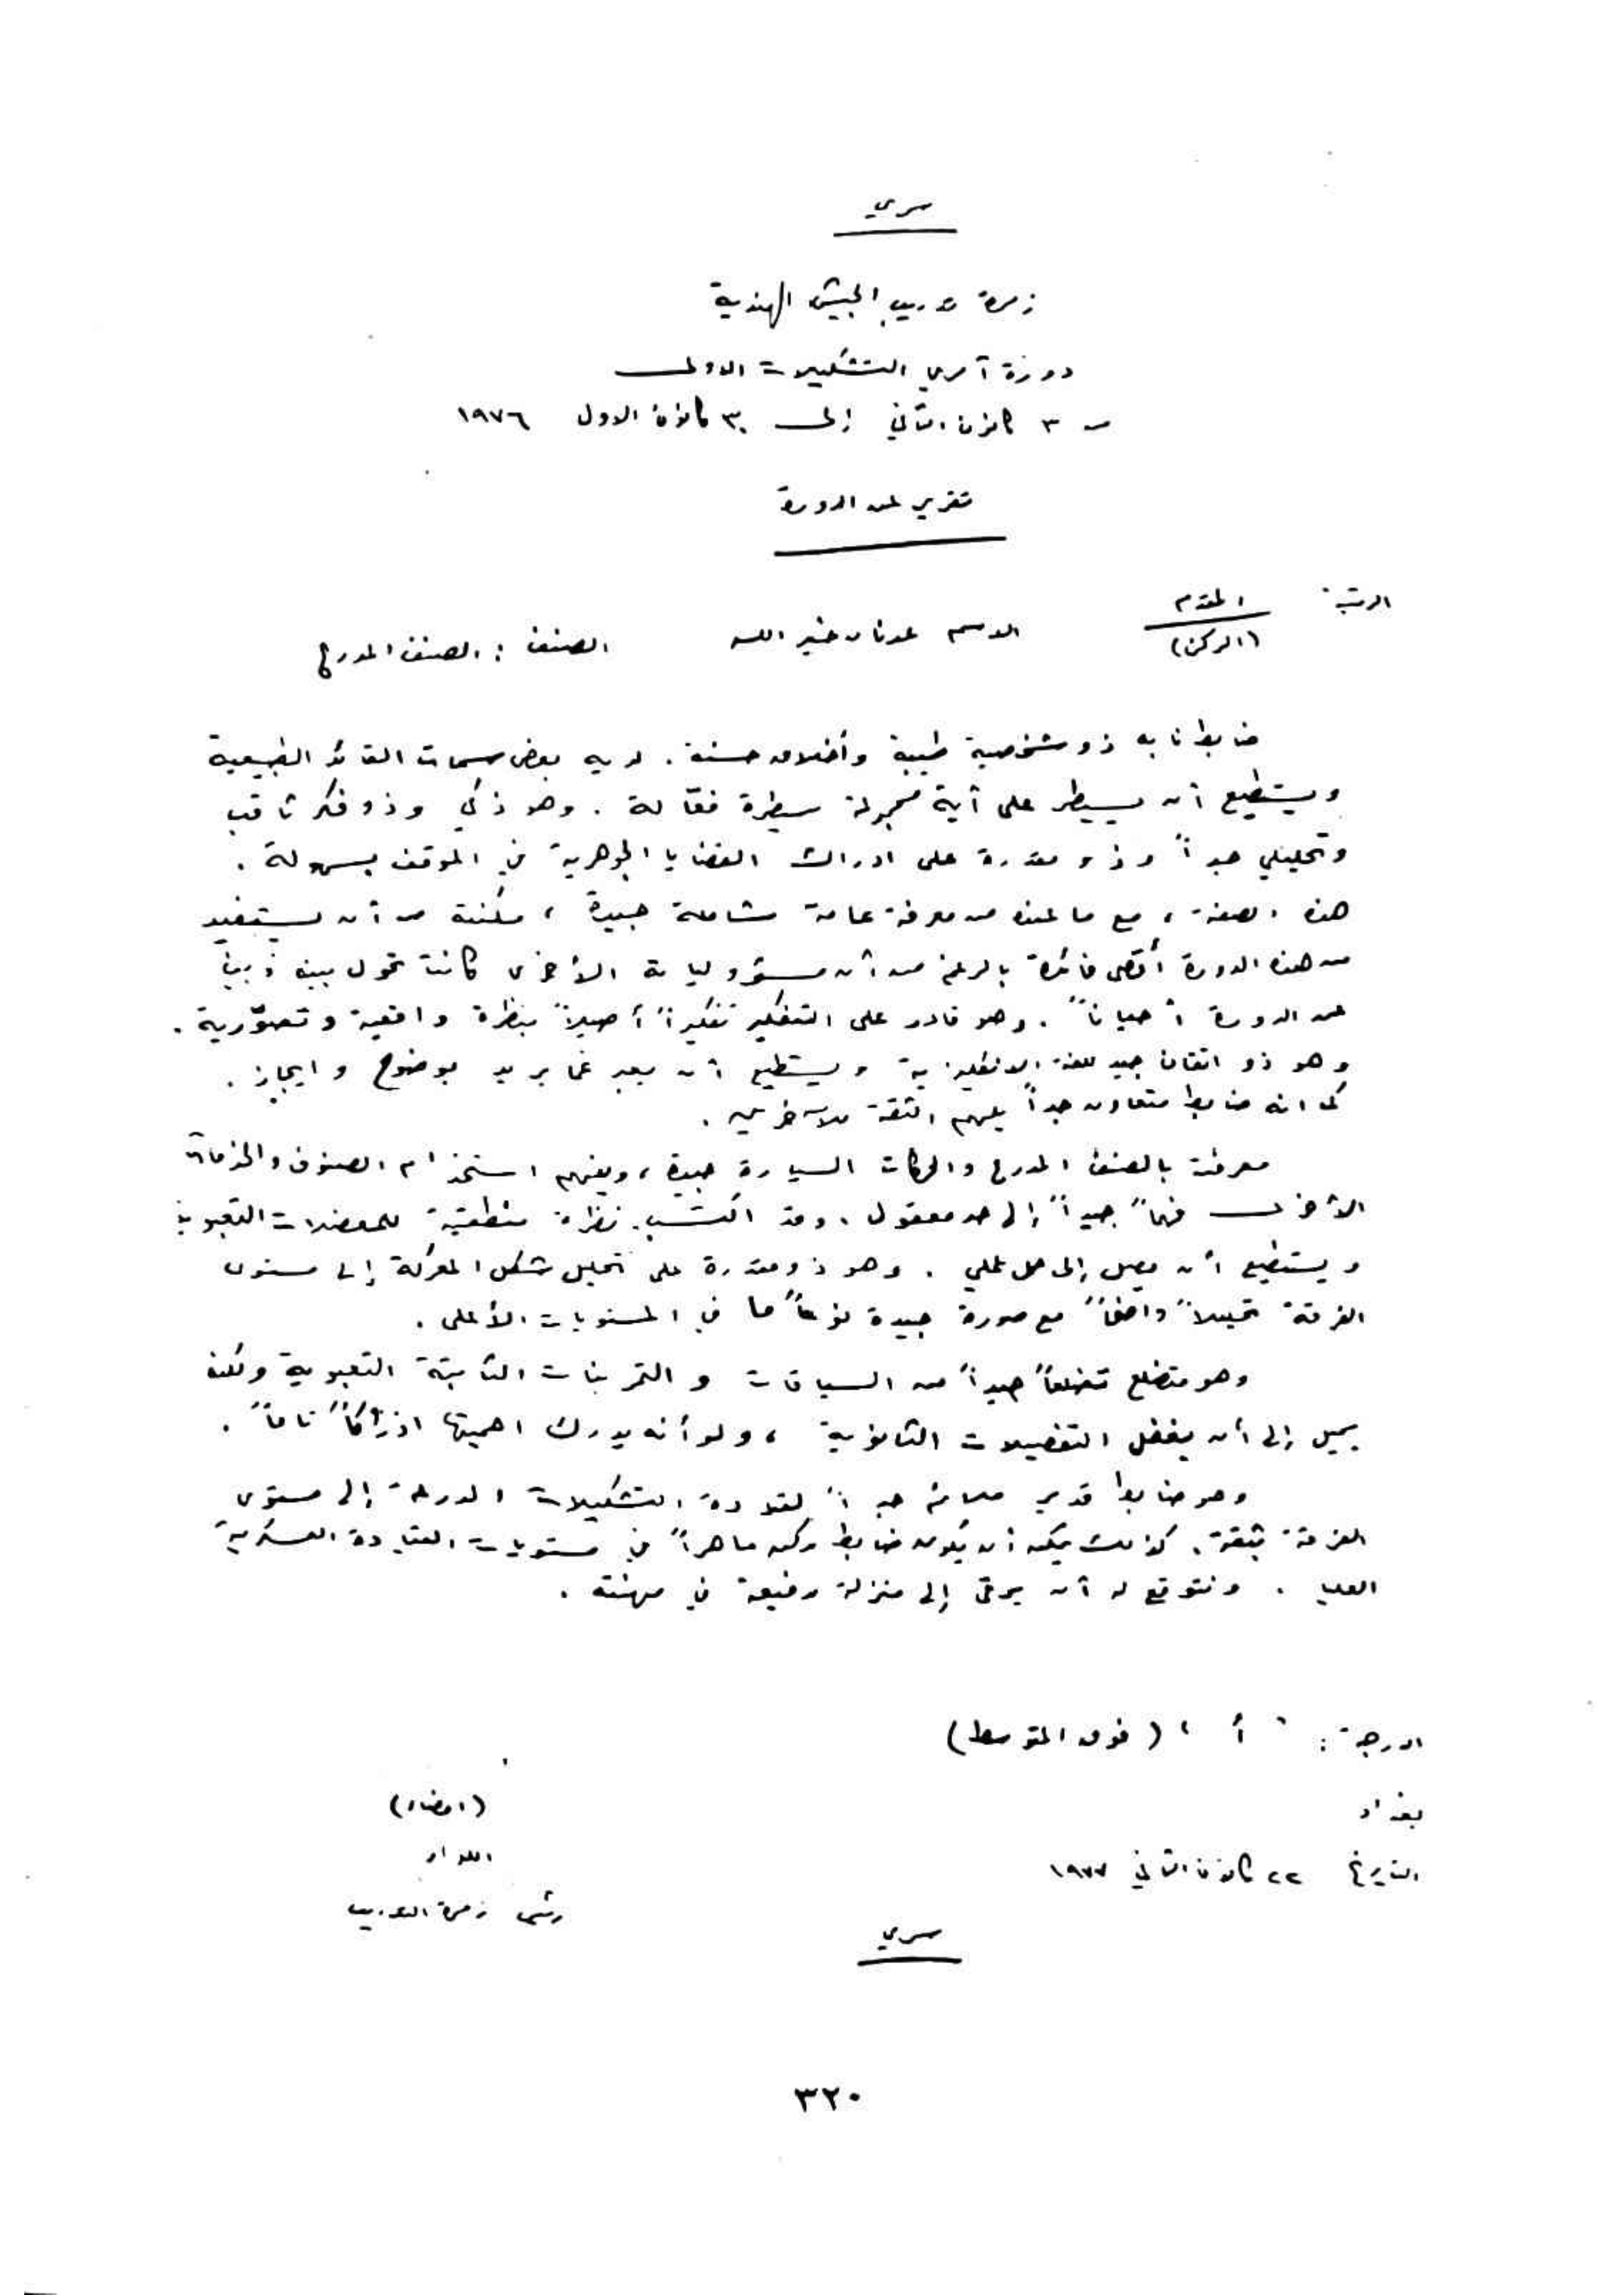 سري
زمرة تدريب الجيش الهندية
دورة آمري التشكيلات الاولى
من ٣ كانون الثاني إلى ٣٠ كانون الاول ١٩٧٦
تقرير عن الدورة
الرتبة: المقدم
(الركن)
الاسم عدنان خير الله
الصنف : الصنف المدرع
ضابط نابه ذو شخصية طيبة وأخلاق حسنة . لديه بعض سمات القائد الطبيعية
ويستطيع أن يسيطر على أية مجموعة سيطرة فعّالة . وهو ذكي وذو فكر ثاقب
وتحليلي جداً وذو مقدرة على ادراك القضايا الجوهرية في الموقف بسهولة .
هذه الصفة ، مع ما عنده من معرفة عامة شاملة جيدة ، مكنته من أن يستفيد
من هذه الدورة أقصى فائدة بالرغم من أن مسؤولياته الأخرى كانت تحول بينه وبين
الدورة أحياناً . وهو قادر على التفكير تفكيراً أصيلاً بنظرة واقعية وتصوّرية .
وهو ذو اتقان جيد للغة الانكليزية ويستطيع أن يعبر عما يريد بوضوح وايجاز .
كما انه ضابط متعاون جداً يلهم الثقة للآخرين .
معرفته بالصنف المدرع والحركات السيارة جيدة ، ويفهم استخدام الصنوف والخدمات
الأخرى فهماً جيداً إلى حد معقول . وقد اكتسب نظرة منطقية للمعضلات التعبوية
ويستطيع أن يصل إلى حل عملي . وهو ذو مقدرة على تحليل شكل المعركة إلى مستوى
الفرقة تحليلاً واضحاً مع صورة جيدة نوعاً ما في المستويات الأعلى .
وهو متضلع تضلعاً جيداً من السياقات و التمرينات الثابتة التعبوية ولكنه
يميل إلى أن يغفل التفصيلات الثانوية ، ولو أنه يدرك اهميتها ادراكاً تاماً .
وهو ضابط قدير ملائم جداً لقيادة التشكيلات المدرعة إلى مستوى
الفرقة بثقة . كذلك يمكن أن يكون ضابط ركن ماهراً في مستويات القيادة العسكرية
العليا . ونتوقع له أن يرقى إلى منزلة رفيعة في مهنته .
الدرجة : ' أ ' (فوق المتوسط)
بغداد
(امضاء)
التاريخ ٢٢ كانون الثاني ١٩٧٧
اللواء
رئيس زمرة التدريب
سري
٣٢٠